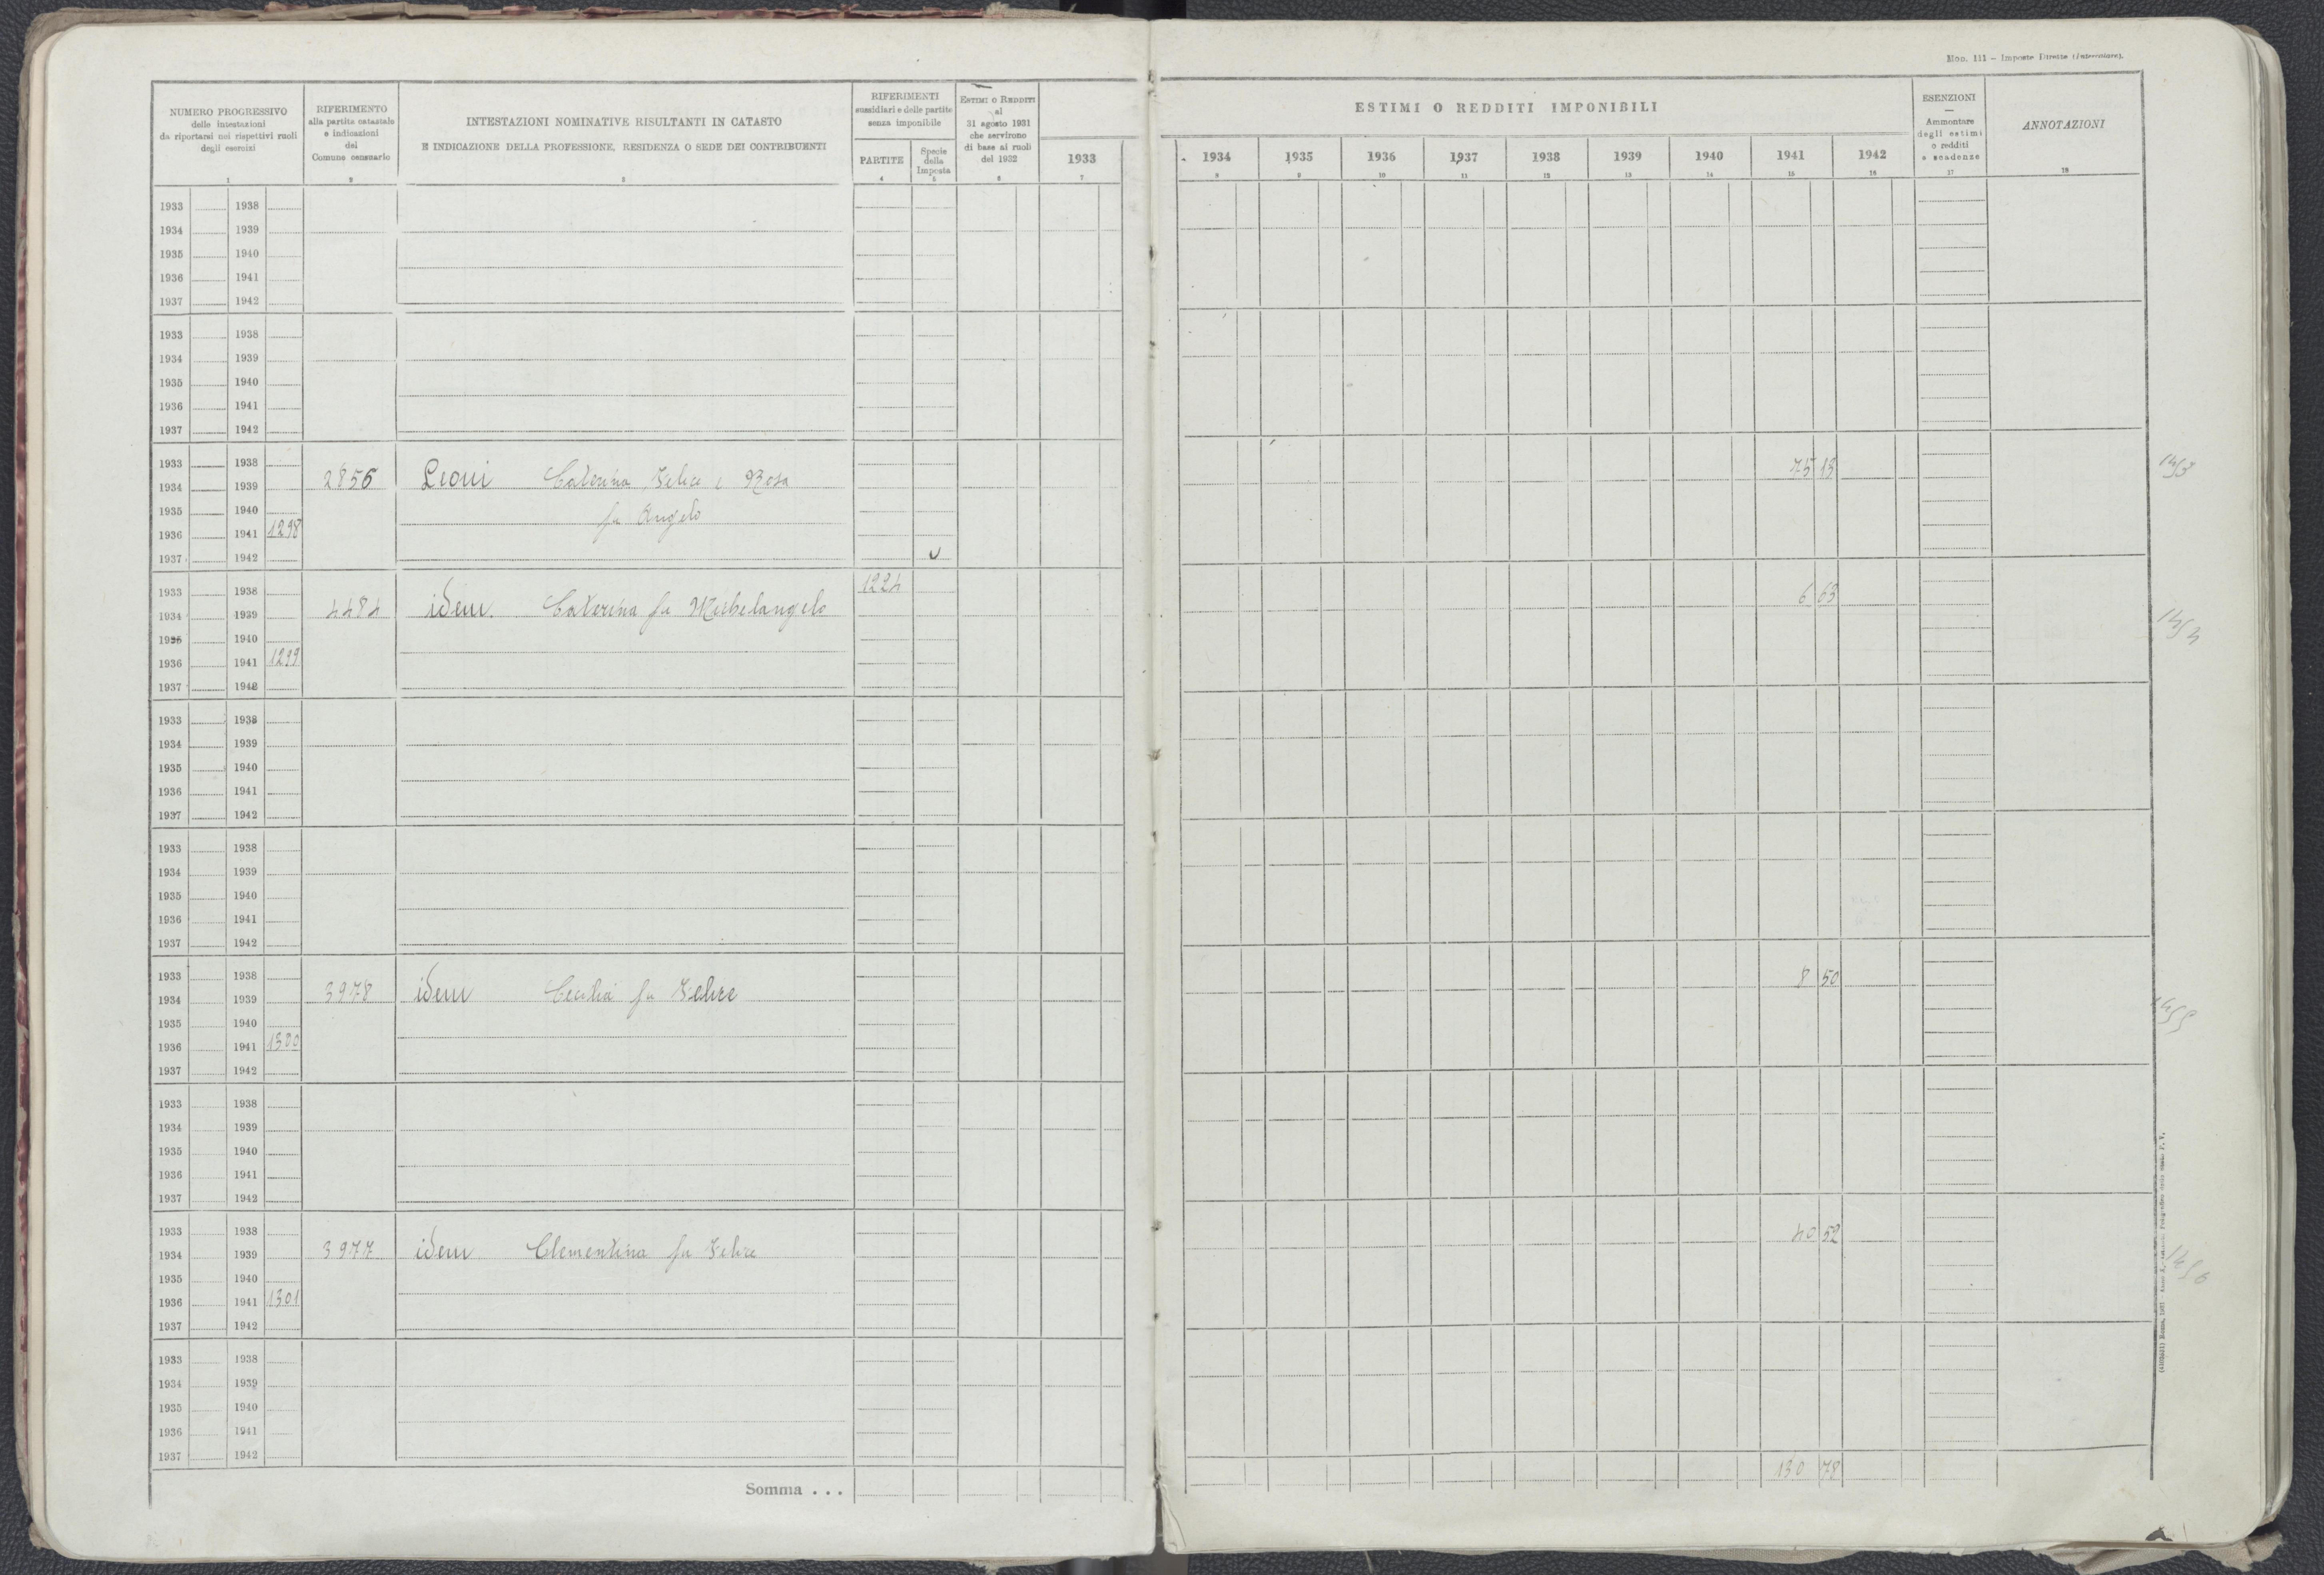 Mod. 111 – Imposte Dirette (Intercalare).
NUMERO PROGRESSIVO
delle intestazioni
da riportarsi nei rispettivi ruoli
degli esercizi
1
RIFERIMENTO
alla partita catastale
e indicazioni
del
Comune censuario
2
INTESTAZIONI NOMINATIVE RISULTANTI IN CATASTO
E INDICAZIONE DELLA PROFESSIONE, RESIDENZA O SEDE DEI CONTRIBUENTI
3
RIFERIMENTI
sussidiari e delle partite
senza imponibile
PARTITE
4
Specie
della
Imposta
5
ESTIMI O REDDITI
al
31 agosto 1931
che servirono
di base ai ruoli
del 1932
6
1933
7
ESTIMI O REDDITI IMPONIBILI
1934 1935 1936 1937 1938 1939 1940 1941 1942
8 9 10 11 12 13 14 15 16
ESENZIONI
—
Ammontare
degli estimi
o redditi
e scadenze
17
ANNOTAZIONI
18
1933 1938
1934 1939
1935 1940
1936 1941
1937 1942
1933 1938
1934 1939
1935 1940
1936 1941
1937 1942
1933 1938 75 13
1934 1939 2856 Leoni Caterina Felice e Rosa
1935 1940 fu Angelo
1936 1941 1298
1937 1942
1933 1938 1224 6 63
1934 1939 4484 idem Caterina fu Michelangelo
1935 1940
1936 1941 1299
1937 1942
1933 1938
1934 1939
1935 1940
1936 1941
1937 1942
1933 1938
1934 1939
1935 1940
1936 1941
1937 1942
1933 1938 8 50
1934 1939 3978 idem Cecilia fu Felice
1935 1940
1936 1941 1300
1937 1942
1933 1938
1934 1939
1935 1940
1936 1941
1937 1942
1933 1938 40 52
1934 1939 3977 idem Clementina fu Felice
1935 1940
1936 1941 1301
1937 1942
1933 1938
1934 1939
1935 1940
1936 1941
1937 1942
Somma . . . 130 78